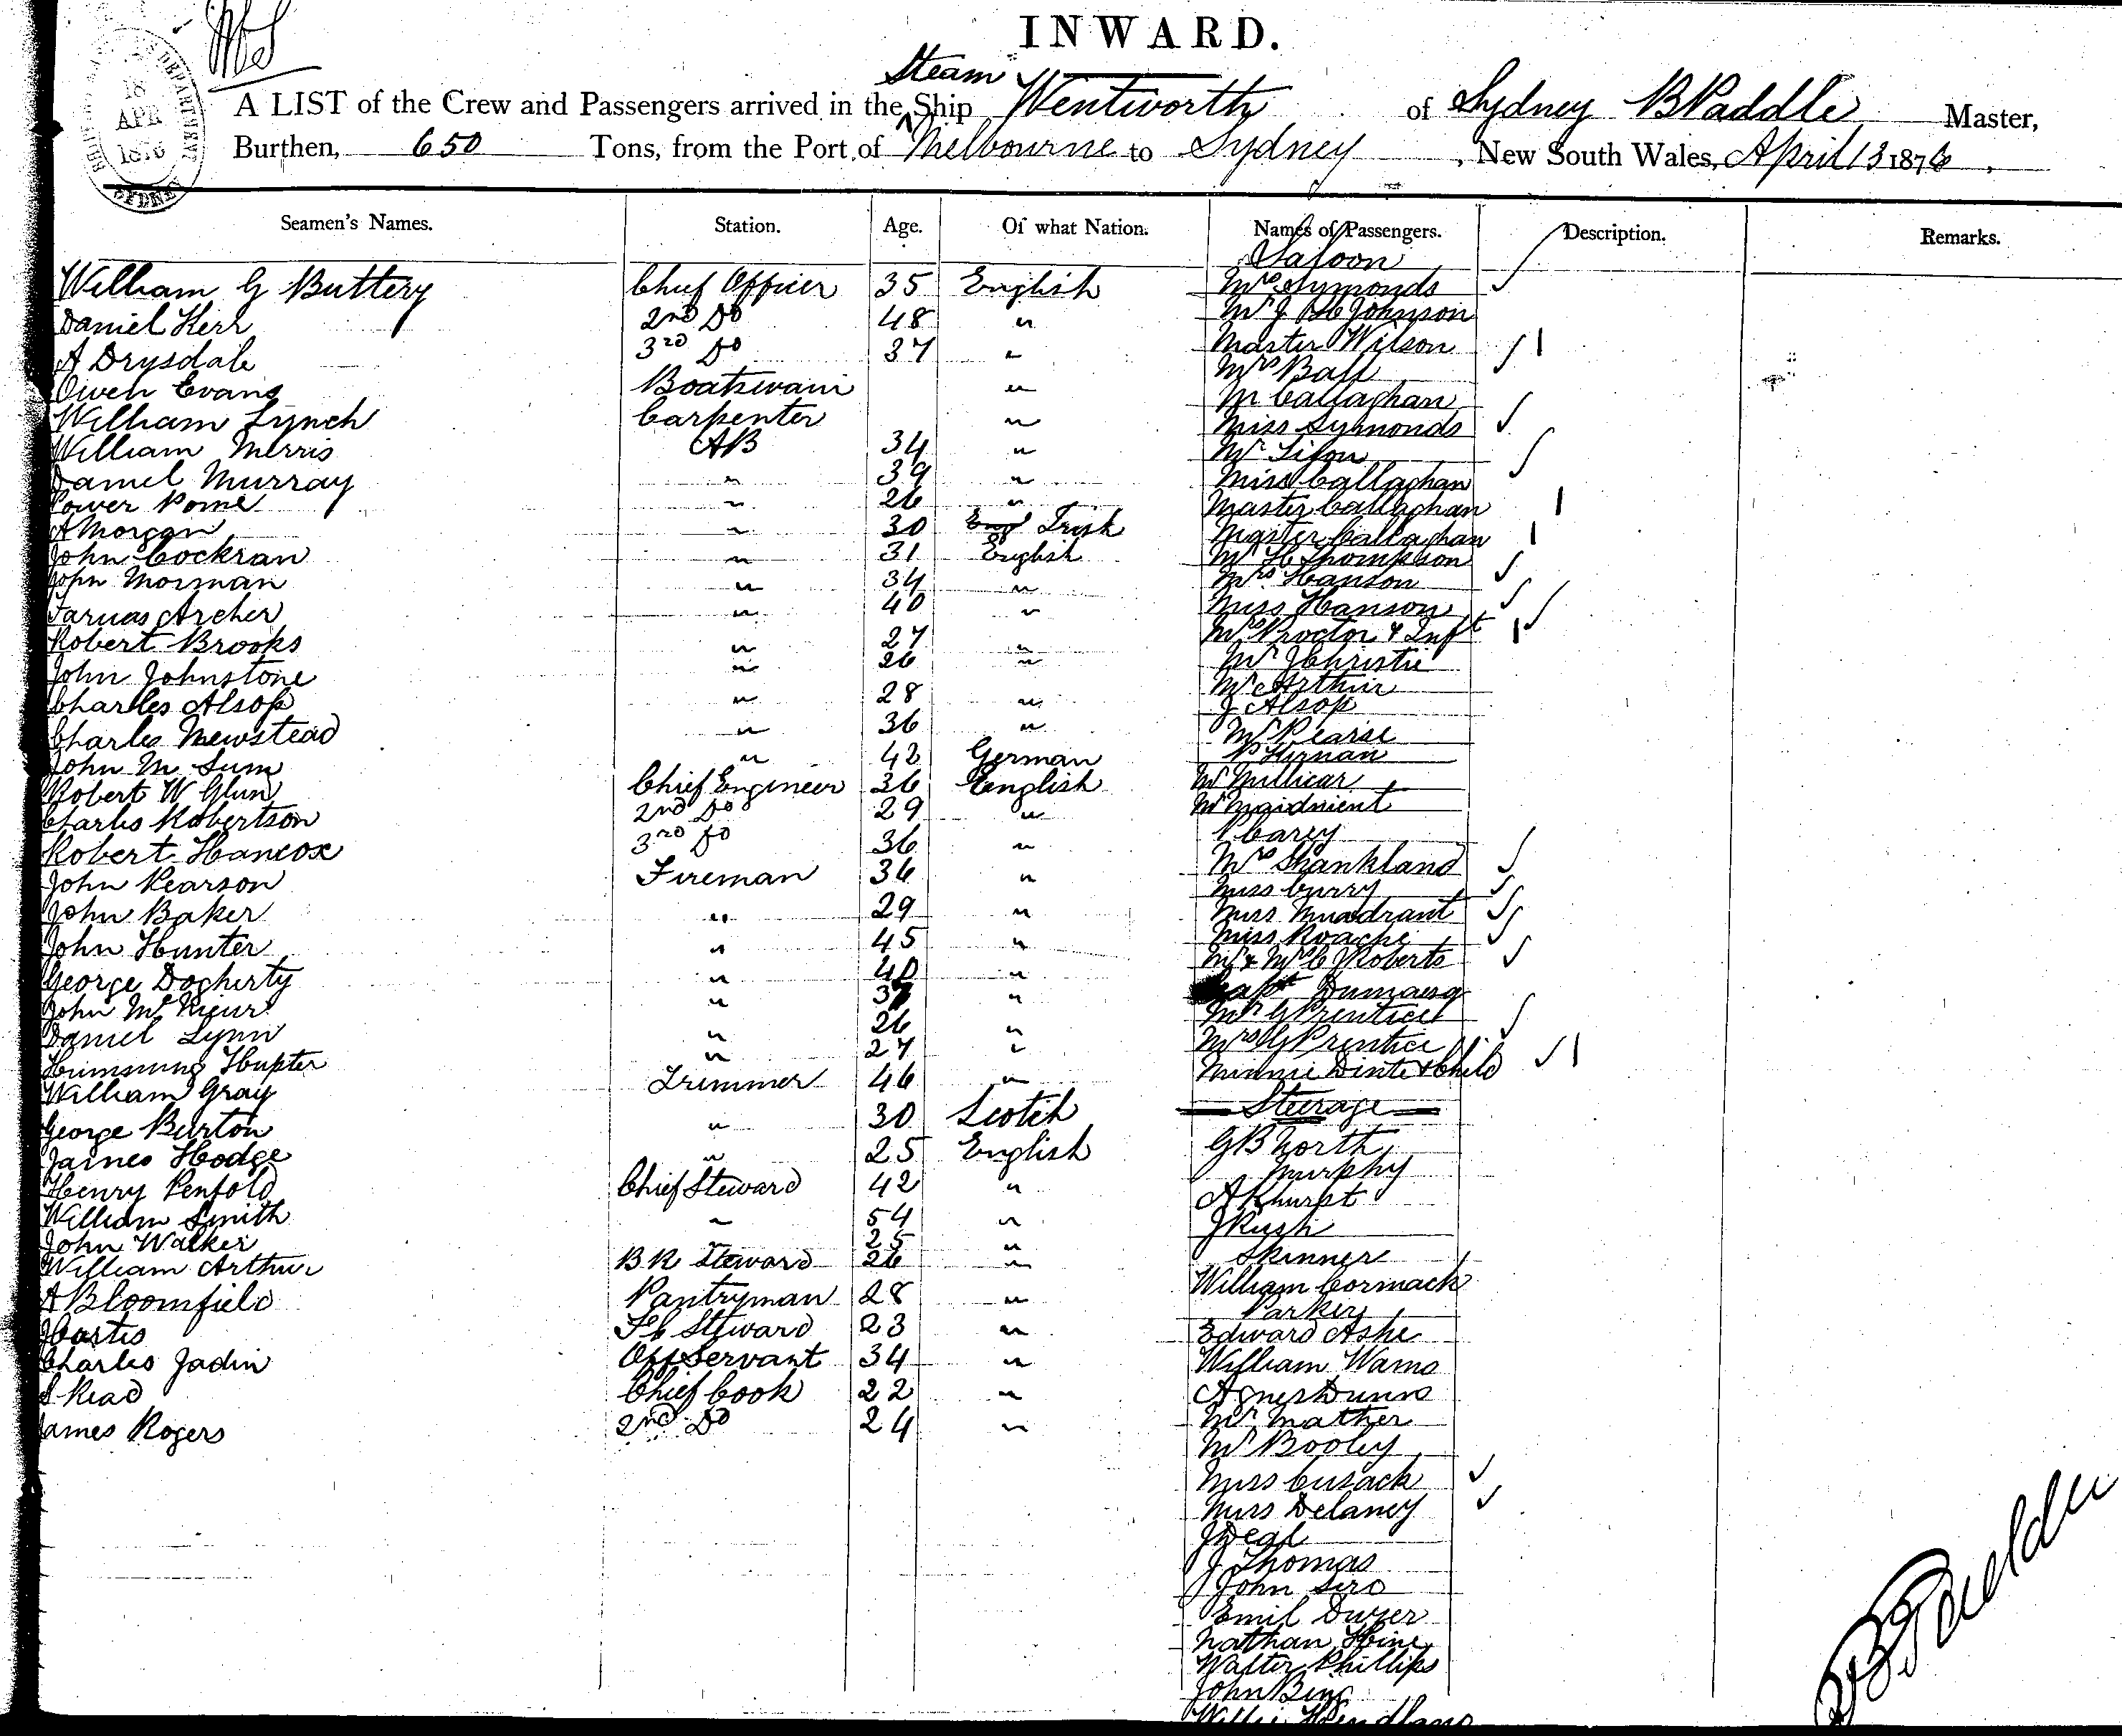 INWARD.
18
APR
1876
SYDNEY
Steam
A LIST of the Crew and Passengers arrived in the Ship Wentworth of Sydney B Paddle Master,
Burthen, 650 Tons, from the Port of Melbourne to Sydney, New South Wales, April 13 1876,
Seamen's Names. Station. Age. Of what Nation. Names of Passengers. Description. Remarks.
Saloon
William G Buttery Chief Officer 35 English Mrs Symonds
Daniel Kerr 2nd Do 48 " Mr J Johnson
A Drysdale 3rd Do 37 " Master Wilson
Mrs Ball
Owen Evans Boatswain " M Callaghan
William Lynch Carpenter " Miss Symonds
William Merris AB 34 " Mr
Daniel Murray " 39 " Miss Callaghan
Power " 26 " Master Callaghan
A Morgan " 30 Eng Irish Master Callaghan
John Cockran " 31 English Mr H Thompson
John Morman " 34 " Mrs Hanson
Archer " 40 " Miss Hanson
Robert Brooks " 27 " Mrs Proctor & Inft
John Johnstone " 26 " Mr J Christie
Charles Alsop " 28 " McArthur
J Alsop
Charles Newstead " 36 " Mr Pearse
John M Sum " 42 German P Kirnan
Robert W Glun Chief Engineer 36 English Mr Millicar
Charles Robertson 2nd Do 29 " Mr Maidment
Robert Hancox 3rd Do 36 " P Carey
John Pearson Fireman 36 " Mrs Shankland
Miss Curry
John Baker " 29 " Miss
John Hunter " 45 " Miss Roache
George Docherty " 40 " Mr & Mrs C J Roberts
John Mc " " Capt Dumaresq
Daniel Lynn " 26 " Mr G Prentice
Hunter " 27 " Mrs G Prentice
William Gray Trimmer 46 " Minnie & Child
Steerage
George Burton " 30 Scotch G B North
James Hodge " 25 English Murphy
Henry Penfold Chief Steward 42 " Akhurst
William Smith " 54 " J Rush
John Walker " 25 " Skinner
William Arthur B R Steward 26 " William Cormack
A Bloomfield Pantryman 28 " Parker
F C Steward 23 " Edward Ashe
Charles Jadin Off Servant 34 " William Wams
S Read Chief Cook 22 " Agnes Dunns
James Rogers 2nd Do 24 " Mr Mather
Mr Booley
Miss Cusack
Miss Delaney
J Deal
J Thomas
John Siro
Emil Dwyer
Nathan Hine
Walter Phillips
John Bing